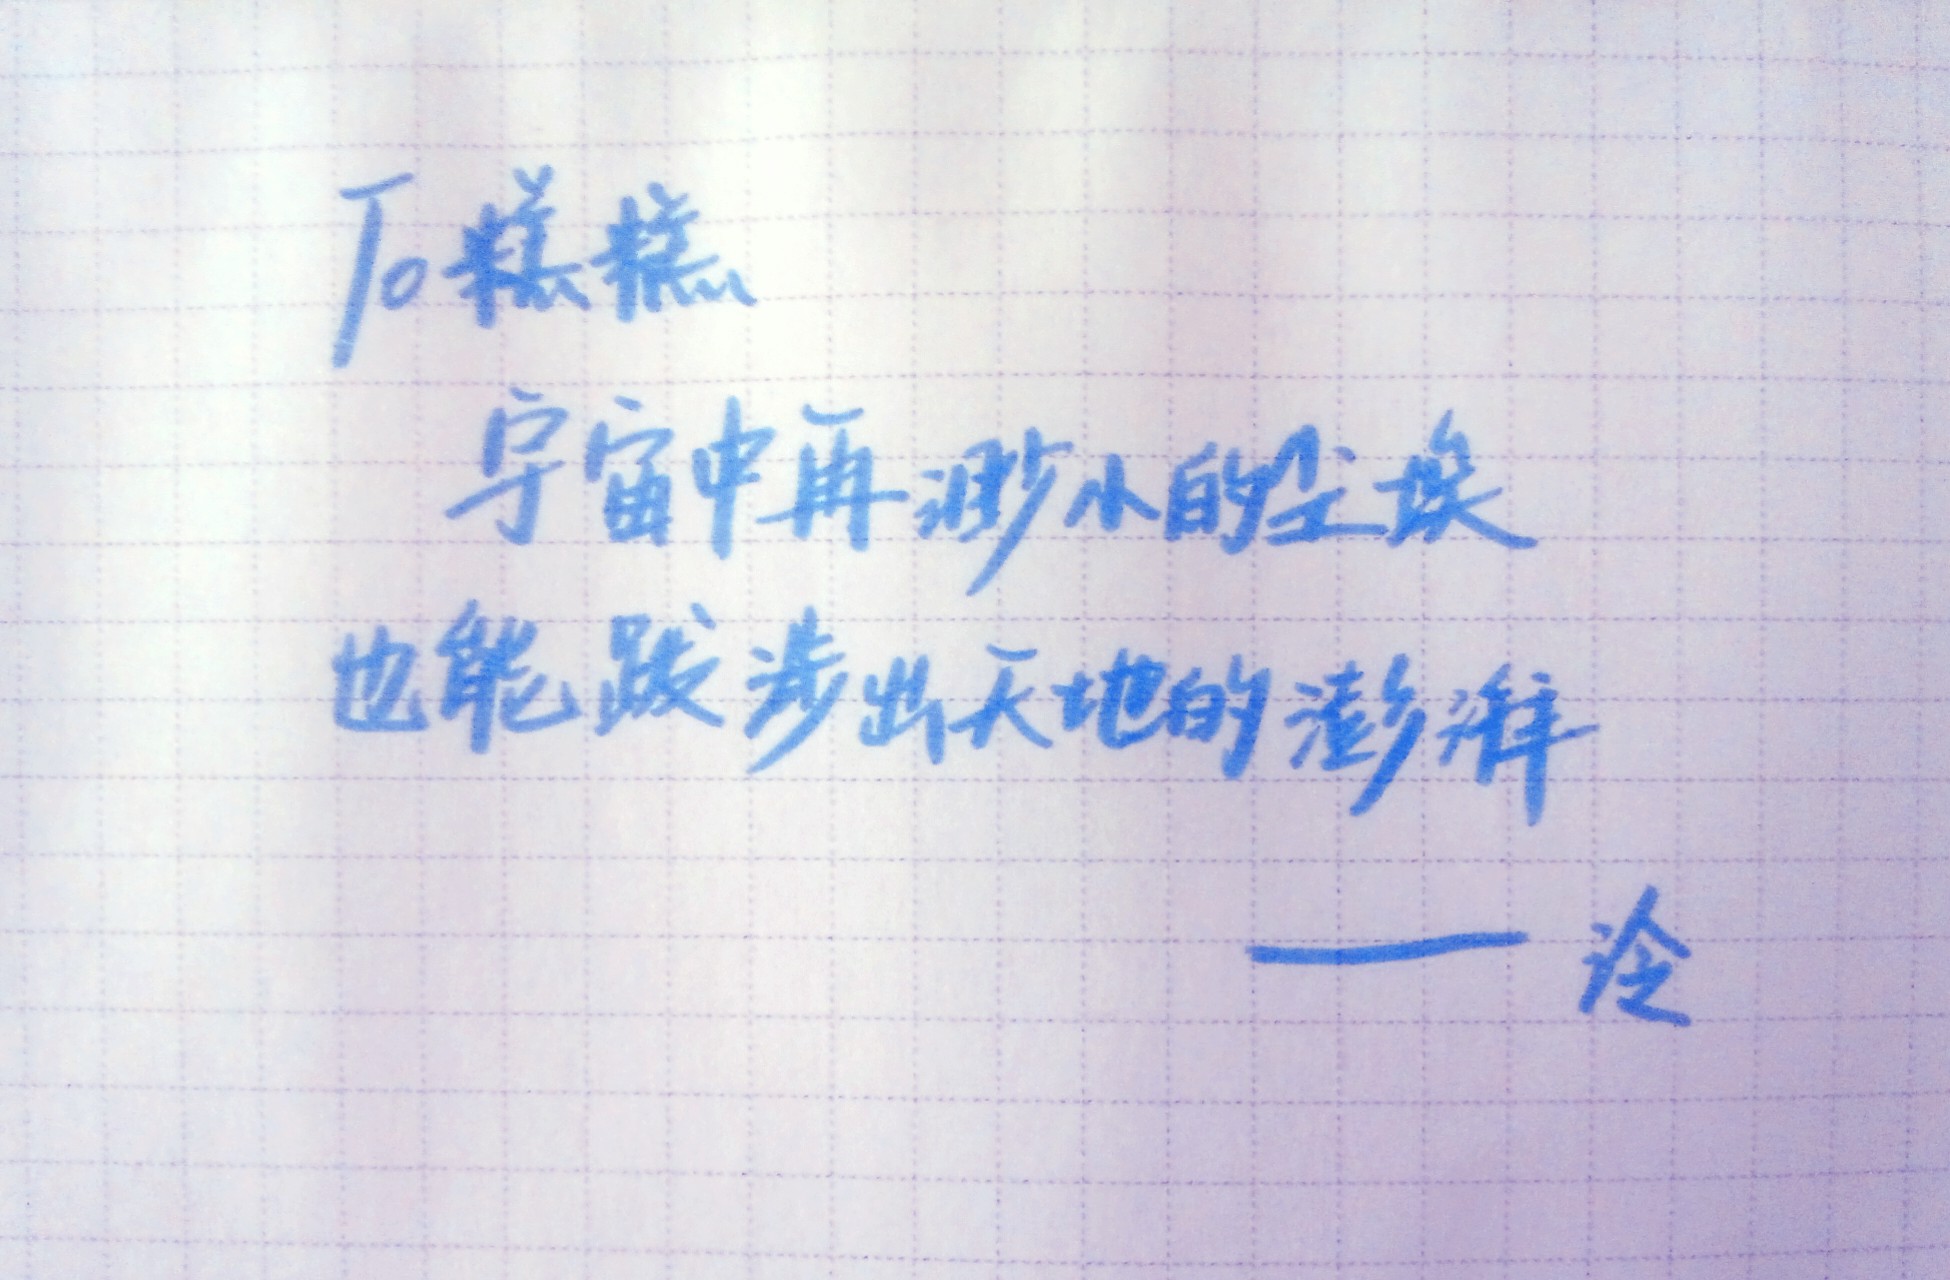 To 糕糕
宇宙中再渺小的尘埃
也能跋涉出天地的澎湃
—— 泠